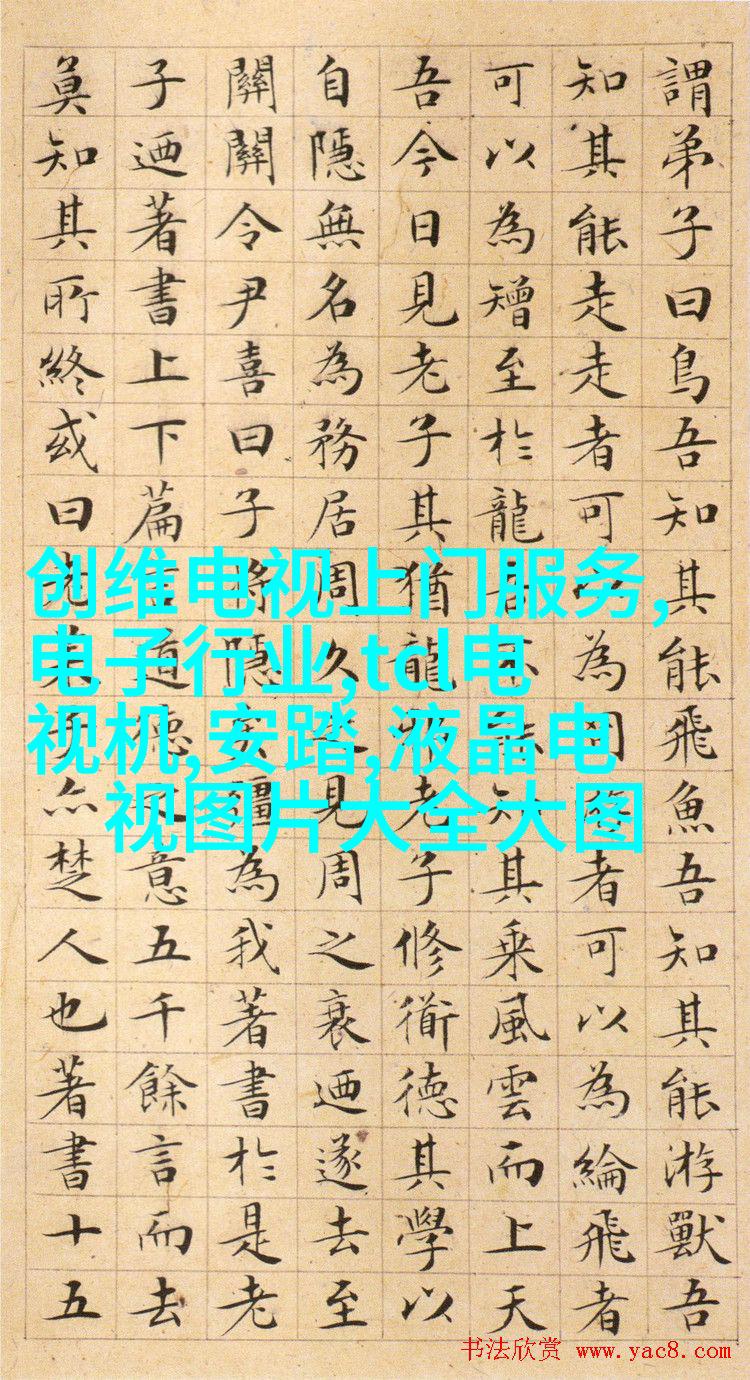 謂弟子曰鳥吾知其能飛魚吾知其能游獸吾
知其能走走者可以為罔游者可以為綸飛者
可以為矰至於龍吾不能知其乘風雲而上天
吾今日見老子其猶龍邪老子修衜德其學以
自隱無名為務居周久之見周之衰迺遂去至
關關令尹喜曰子將隱矣彊為我著書於是老
子迺著書上下篇言道德之意五千餘言而去
莫知其所終或曰老萊子亦楚人也著書十五
创维电视上门服务,
电子行业,tcl电
视机,安踏,液晶电
视图片大全大图
书法欣赏 www.yac8.com